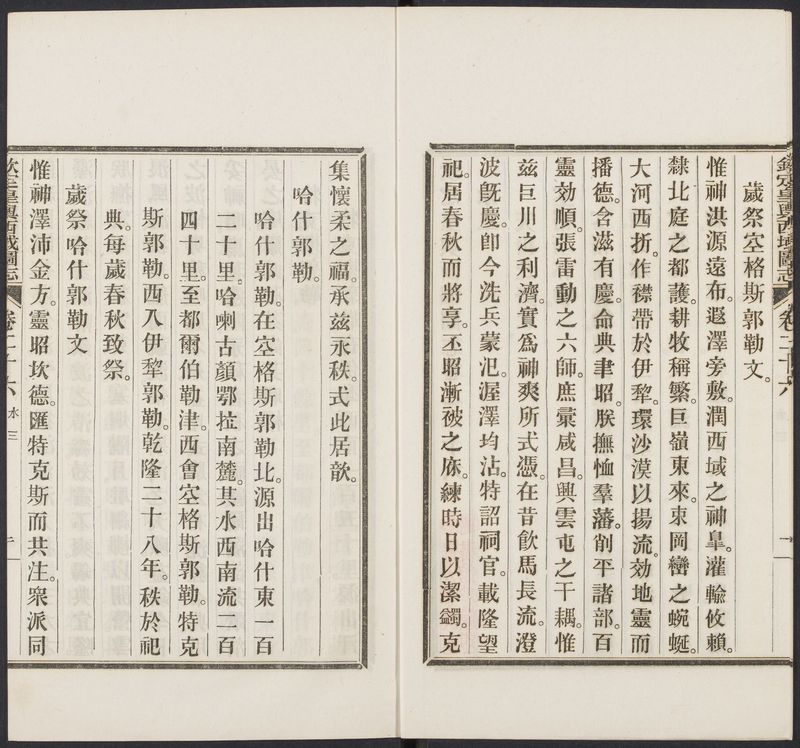 歲祭空格斯郭勒文。
惟神洪源遠布。遐澤旁敷。潤西域之神臯。灌輸攸賴。
隸北庭之都護。耕牧稱繁。巨嶺東來。束岡巒之蜿蜒。
大河西折。作襟帶於伊犂。環沙漠以揚流。効地靈而
播德。含滋有慶。命典聿昭。朕撫恤羣藩。削平諸部。百
靈効順。張雷動之六師。庶彚咸昌。興雲屯之千耦。惟
兹巨川之利濟。實爲神爽所式憑。在昔飮馬長流。澄
波旣慶。卽今洗兵蒙汜。渥澤均沾。特詔祠官。載隆望
祀。居春秋而將享。丕昭漸被之庥。練時日以潔蠲。克
欽定皇輿西域圖志 卷二十六
集懷柔之福。承兹永秩。式此居歆。
哈什郭勒。
哈什郭勒。在空格斯郭勒北。源出哈什東一百
二十里。哈喇古顏鄂拉南麓。其水西南流二百
四十里。至都爾伯勒津。西會空格斯郭勒。特克
斯郭勒。西入伊犂郭勒。乾隆二十八年。秩於祀
典。每歲春秋致祭。
歲祭哈什郭勒文
惟神澤沛金方。靈昭坎德。匯特克斯而共注。衆派同
欽定皇輿西域圖志 卷二十六 水三